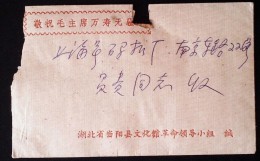 敬祝毛主席万寿无
上海市 南京 路22号
同志 收
湖北省当阳县文化馆革命领导小组 缄